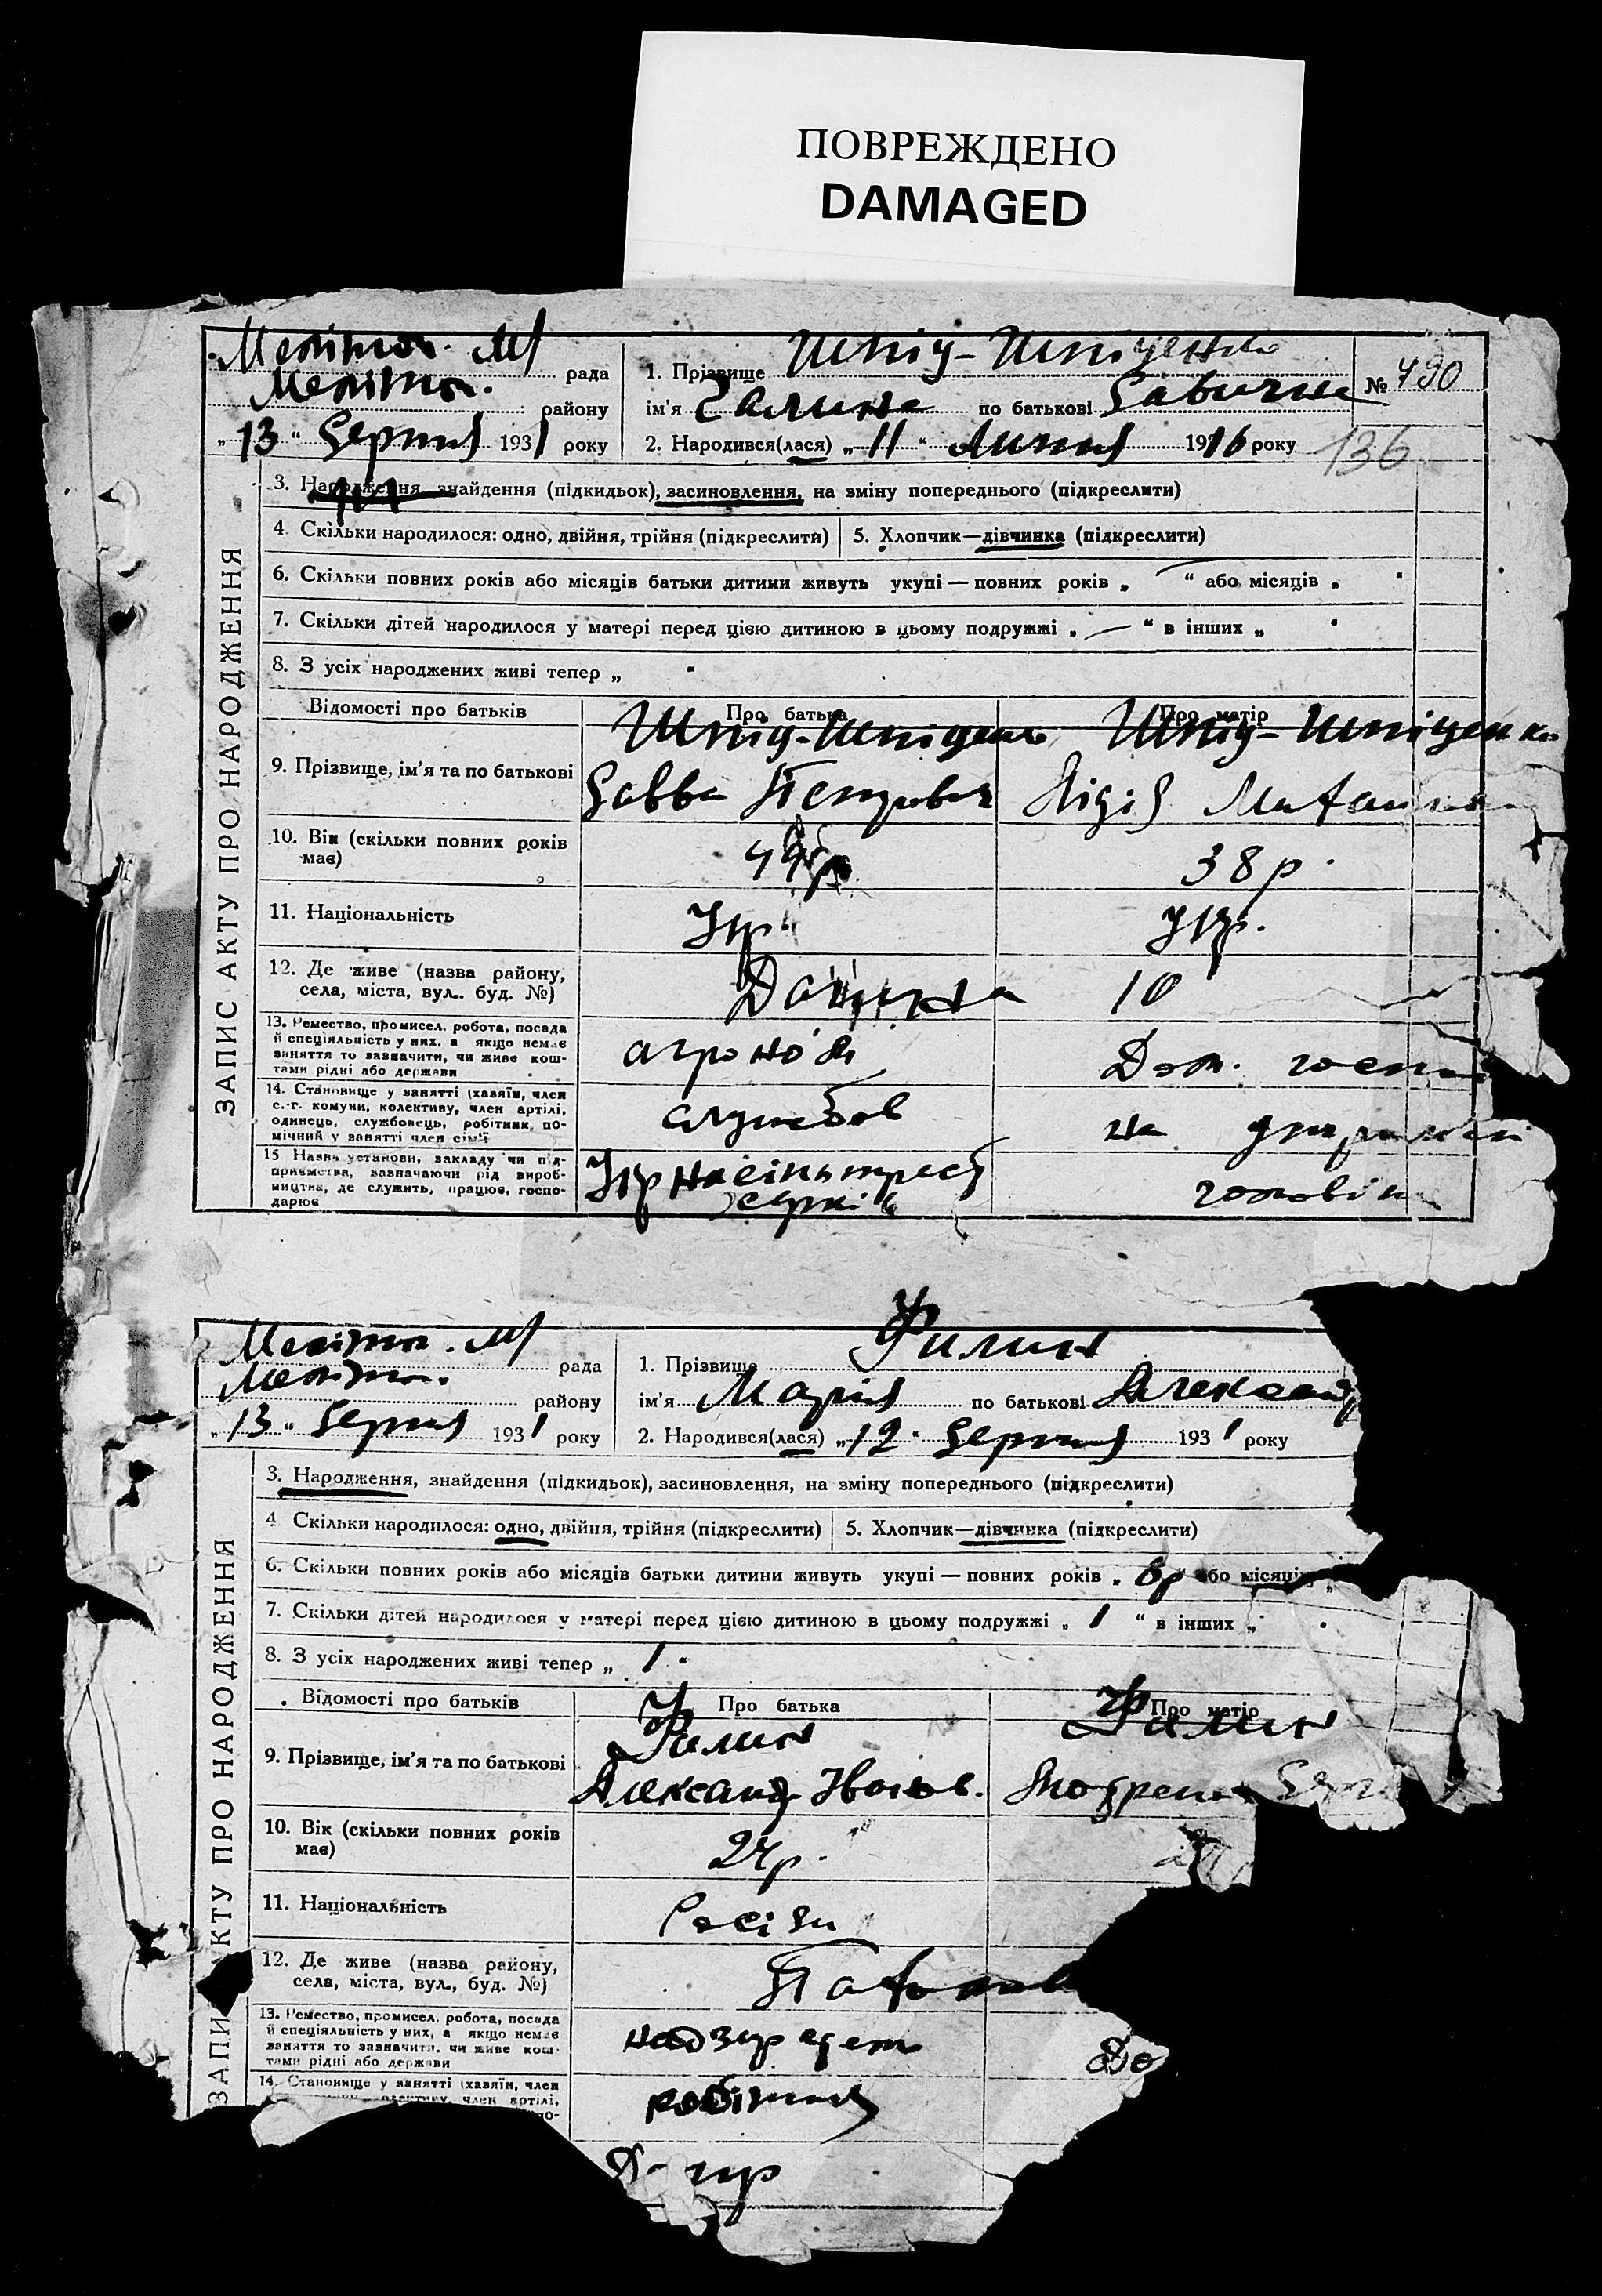 ПОВРЕЖДЕНО
DAMAGED
Меліт. М/ рада
Меліт. району
„13“ Серпня 1931 року
1. Прізвище Шпіц-Шпіценко
ім'я Галина по батькові Савична
№ 490
2. Народився(лася) „11“ Липня 1916 року
136
ЗАПИС АКТУ ПРО НАРОДЖЕННЯ
3. Народження, знайдення (підкидьок), засиновлення, на зміну попереднього (підкреслити)
4. Скільки народилося: одно, двійня, трійня (підкреслити) 5. Хлопчик—дівчинка (підкреслити)
6. Скільки повних років або місяців батьки дитини живуть укупі — повних років „ — “ або місяців „ “
7. Скільки дітей народилося у матері перед цією дитиною в цьому подружжі „ — “ в інших „ “
8. З усіх народжених живі тепер „ “
Відомості про батьків Про батька Про матір
9. Прізвище, ім'я та по батькові
Шпіц-Шпіценко
Савва Петрович
Шпіц-Шпіценко
Лідія
10. Вік (скільки повних років має) 38 р.
11. Національність Укр. Укр.
12. Де живе (назва району, села, міста, вул., буд. №) 10
13. Ремество, промисел, робота, посада й спеціяльність у них, а якщо немає заняття то зазначити, чи живе коштами рідні або держави
агроном
Дом. госп.
14. Становище у занятті (хазяїн, член с.-г. комуни, колективу, член артілі, одинець, службовець, робітник, помічний у занятті член сім'ї
службов
на утриман
15 Назва установи, закладу чи підприємства, зазначаючи рід виробництва, де служить, працює, господарює
Укрнасіньтрест
Харків
чоловік
Меліт. М/ рада
Меліт. району
„13“ Серпня 1931 року
1. Прізвище Филин
ім'я Марія по батькові Александр
2. Народився(лася) „12“ Серпня 1931 року
КТУ ПРО НАРОДЖЕННЯ
3. Народження, знайдення (підкидьок), засиновлення, на зміну попереднього (підкреслити)
4 Скільки народилося: одно, двійня, трійня (підкреслити) 5. Хлопчик—дівчинка (підкреслити)
6. Скільки повних років або місяців батьки дитини живуть укупі — повних років „ бо місяців „
7. Скільки дітей народилося у матері перед цією дитиною в цьому подружжі „ 1 “ в інших „ “
8. З усіх народжених живі тепер „ 1 “
Відомості про батьків Про батька Про матір
9. Прізвище, ім'я та по батькові
Филин
Александр Іванов.
Филин
10. Вік (скільки повних років має) 24 р.
11. Національність Росіян
12. Де живе (назва району, села, міста, вул., буд. №)
13. Ремество, промисел, робота, посада й спеціяльність у них, а якщо немає заняття то зазначити, чи живе коштами рідні або держави
До
14. Становище у занятті (хазяїн, член
член артілі,
робітник